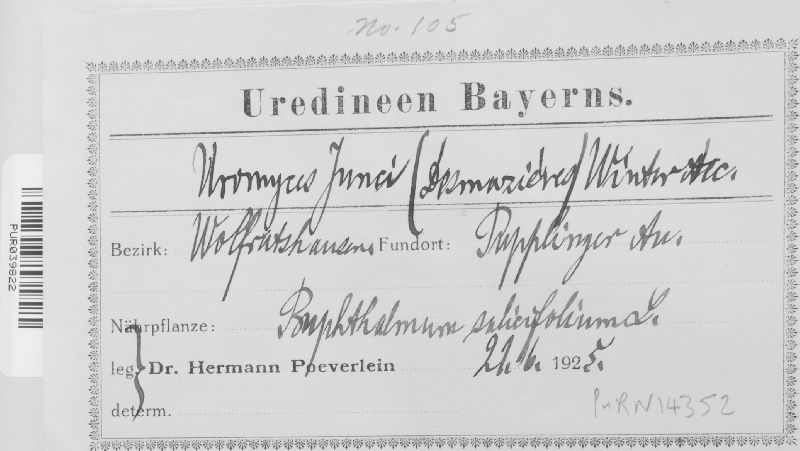 No. 105
Uredineen Bayerns.
Uromyces Junci (Desmazières) Winter Aec.
Bezirk: Wolfratshausen. Fundort: Pupplinger Au.
Nährpflanze: Buphthalmum salicifolium L.
leg. Dr. Hermann Poeverlein 21. 6. 1925.
determ.
PURN14352
PUR039822